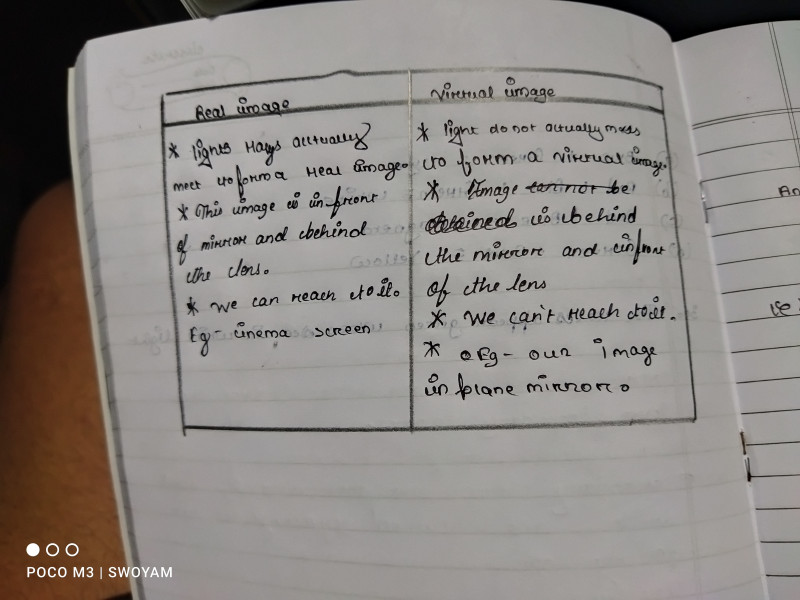 Real image
* lights rays actually
meet to form a real image.
* This image is in front
of mirror and behind
the lens.
* We can reach to it.
Eg - cinema screen
Virtual image
* light do not actually
to form a virtual image.
* Image can not be
obtained is behind
the mirror and infront
of the lens
* We can't reach to it.
* Eg - our image
in plane mirror.
An
POCO M3 | SWOYAM